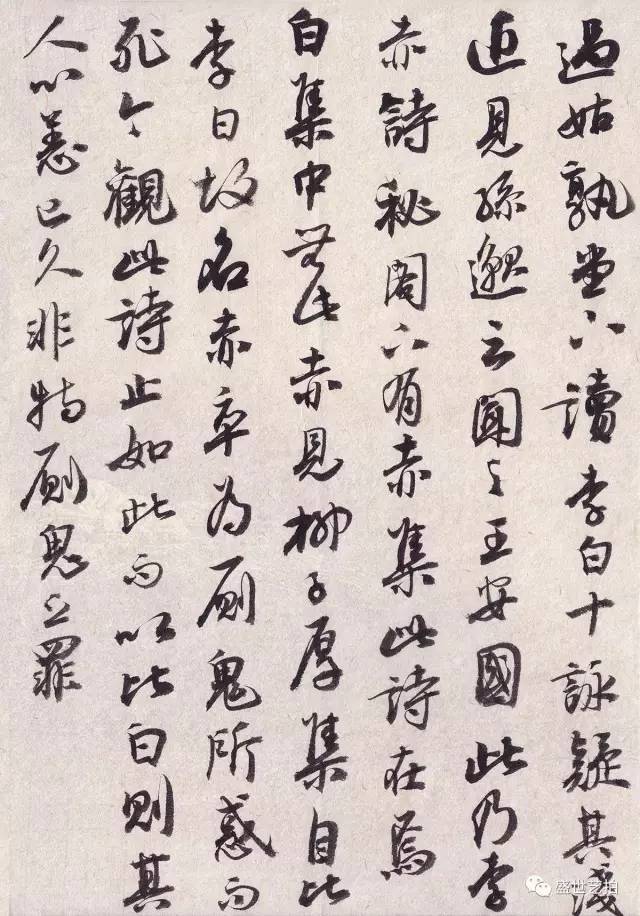 過姑孰堂下讀李白十詠疑其淺
近見孫邈云聞之王安國此乃李
赤詩秘閣下有赤集此詩在焉
白集中無此赤見柳子厚集自比
李白故名赤卒為厠鬼所惑而
死今觀此詩止如此而以比白則其
人心恙已久非特厠鬼之罪
盛世艺拍